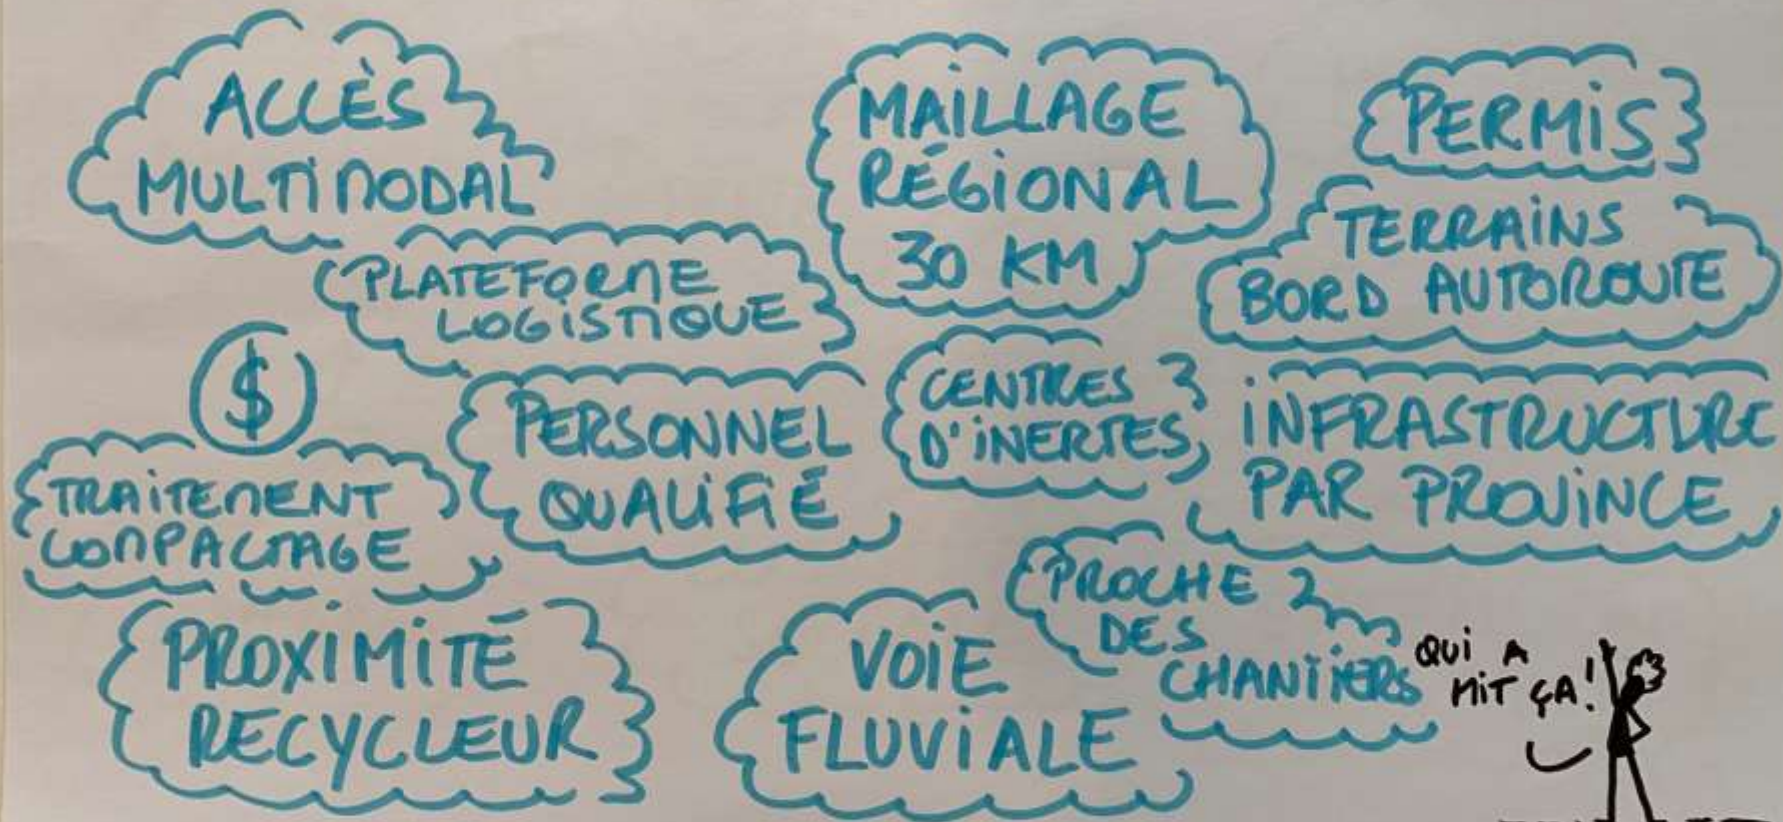 ACCÈS
MULTIMODAL
MAILLAGE
RÉGIONAL
30 KM
PERMIS
TERRAINS
BORD AUTOROUTE
PLATEFORME
LOGISTIQUE
$
TRAITEMENT
COMPACTAGE
PERSONNEL
QUALIFIÉ
CENTRES
D'INERTES
INFRASTRUCTURE
PAR PROVINCE
PROXIMITÉ
RECYCLEUR
VOIE
FLUVIALE
PROCHE
DES
CHANTIERS
QUI A
MIT ÇA!